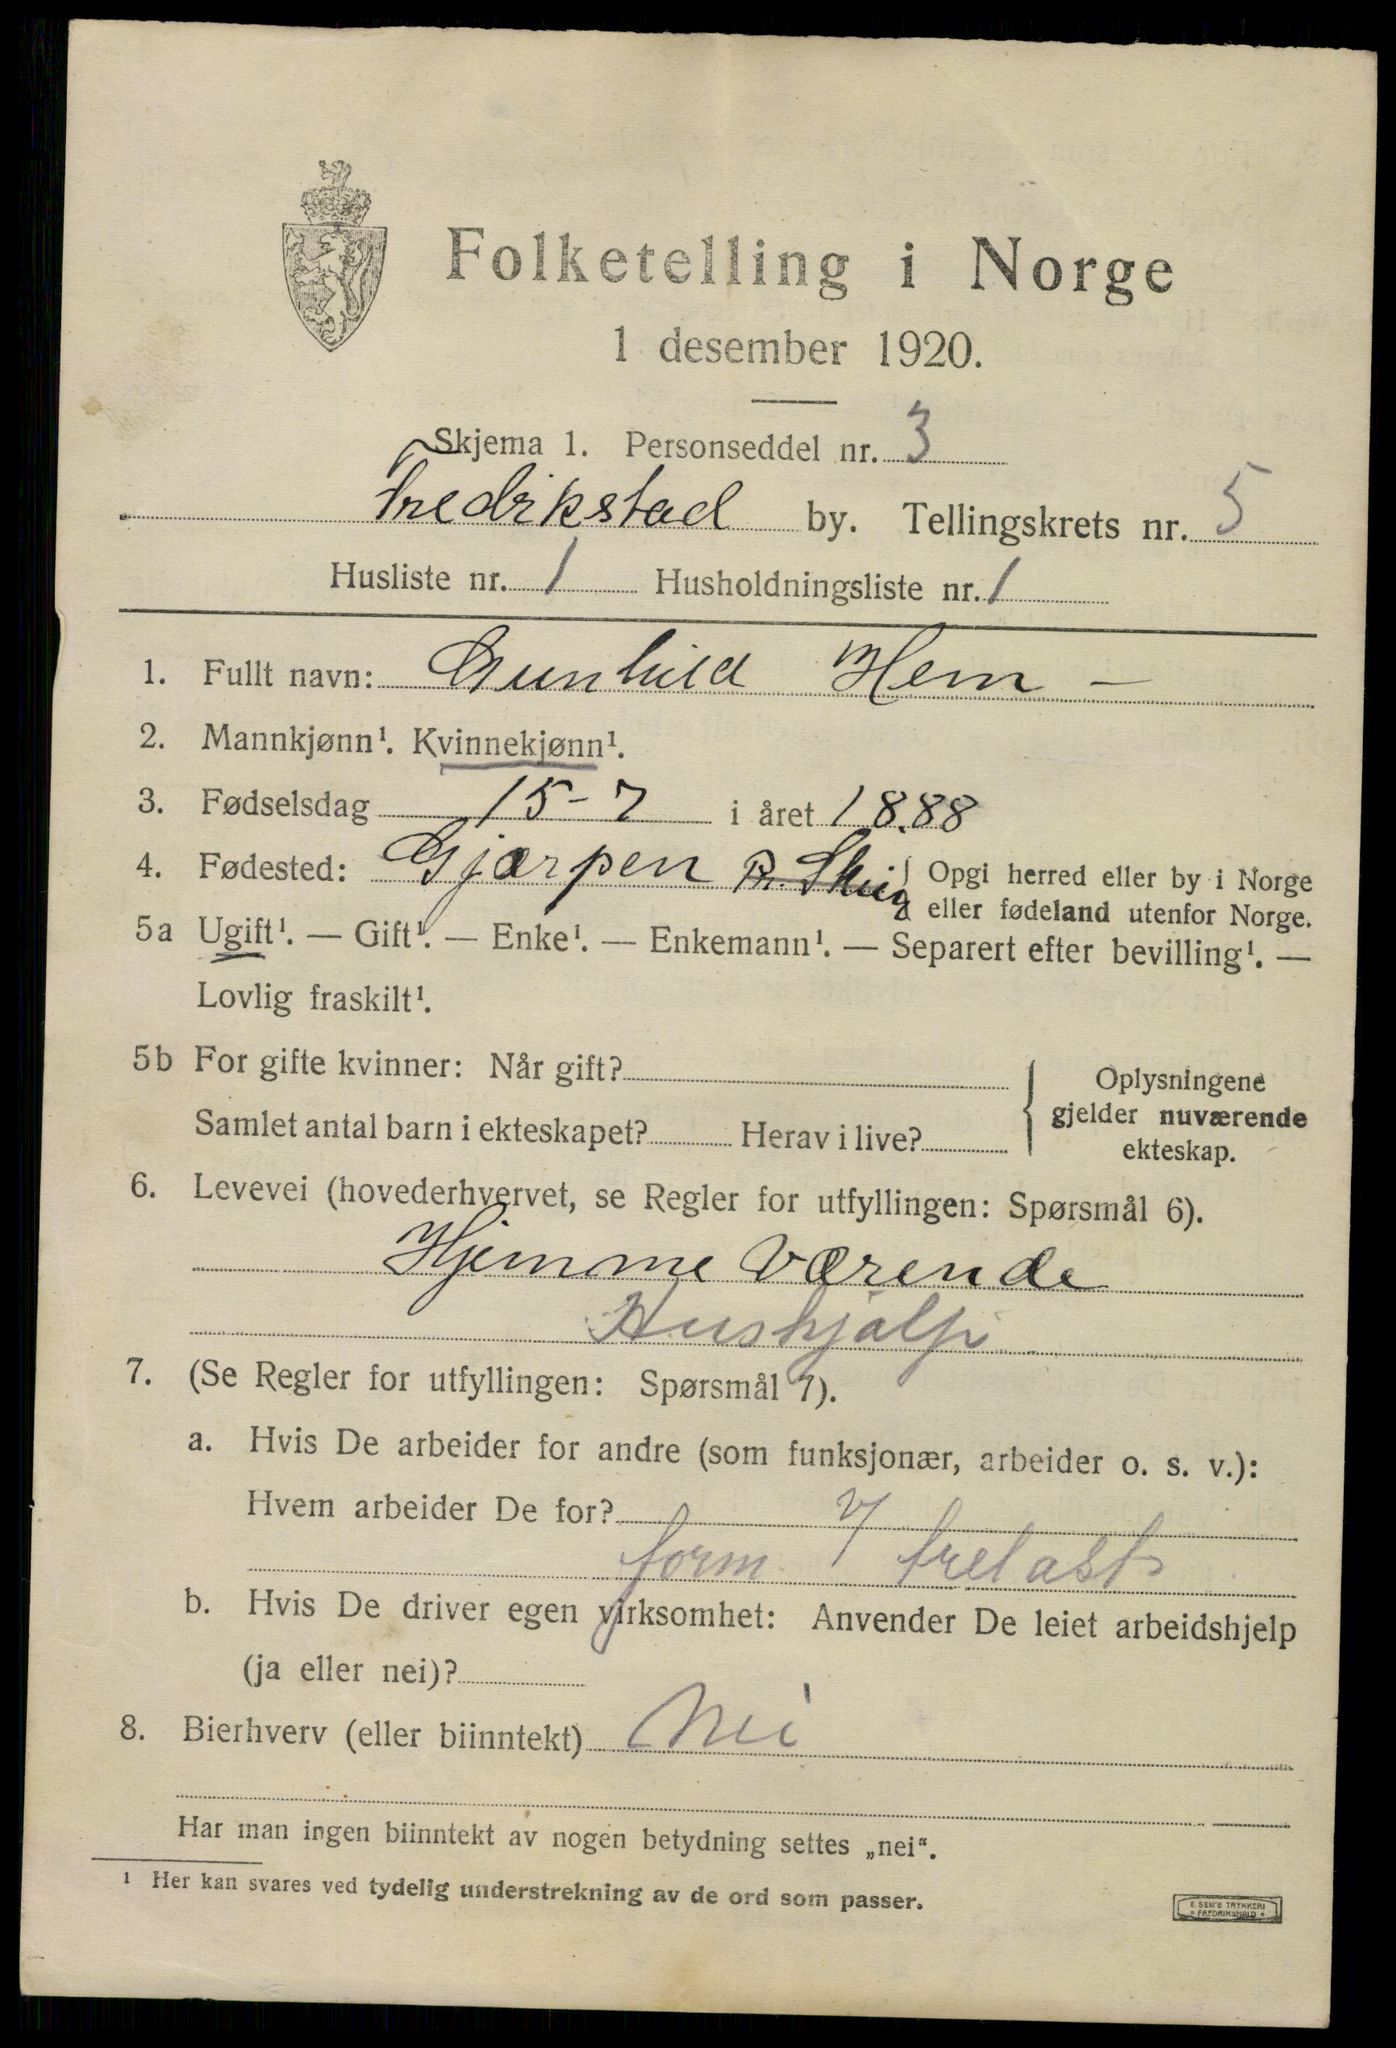 Folketelling i Norge
1 desember 1920.
Skjema 1. Personseddel nr. 3
Fredrikstad by. Tellingskrets nr. 5
Husliste nr. 1 Husholdningsliste nr. 1
1. Fullt navn: Gunhild Hem –
2. Mannkjønn¹. Kvinnekjønn¹.
3. Fødselsdag 15-7 i året 1888
4. Fødested: Gjærpen Pr. Skien Opgi herred eller by i Norge
eller fødeland utenfor Norge.
5a Ugift¹. — Gift¹. — Enke¹. — Enkemann¹. — Separert efter bevilling¹. —
Lovlig fraskilt¹.
5b For gifte kvinner: Når gift?
Samlet antal barn i ekteskapet? Herav i live?
Oplysningene
gjelder nuværende
ekteskap.
6. Levevei (hovederhvervet, se Regler for utfyllingen: Spørsmål 6).
Hjemmeværende
Hushjælp
7. (Se Regler for utfyllingen: Spørsmål 7).
a. Hvis De arbeider for andre (som funksjonær, arbeider o. s. v.):
Hvem arbeider De for?
form. trelast
b. Hvis De driver egen virksomhet: Anvender De leiet arbeidshjelp
(ja eller nei)?
8. Bierhverv (eller biinntekt) Nei
Har man ingen biinntekt av nogen betydning settes „nei“.
¹ Her kan svares ved tydelig understrekning av de ord som passer.
E. SEM'S TRYKKERI
* FREDRIKSHALD *